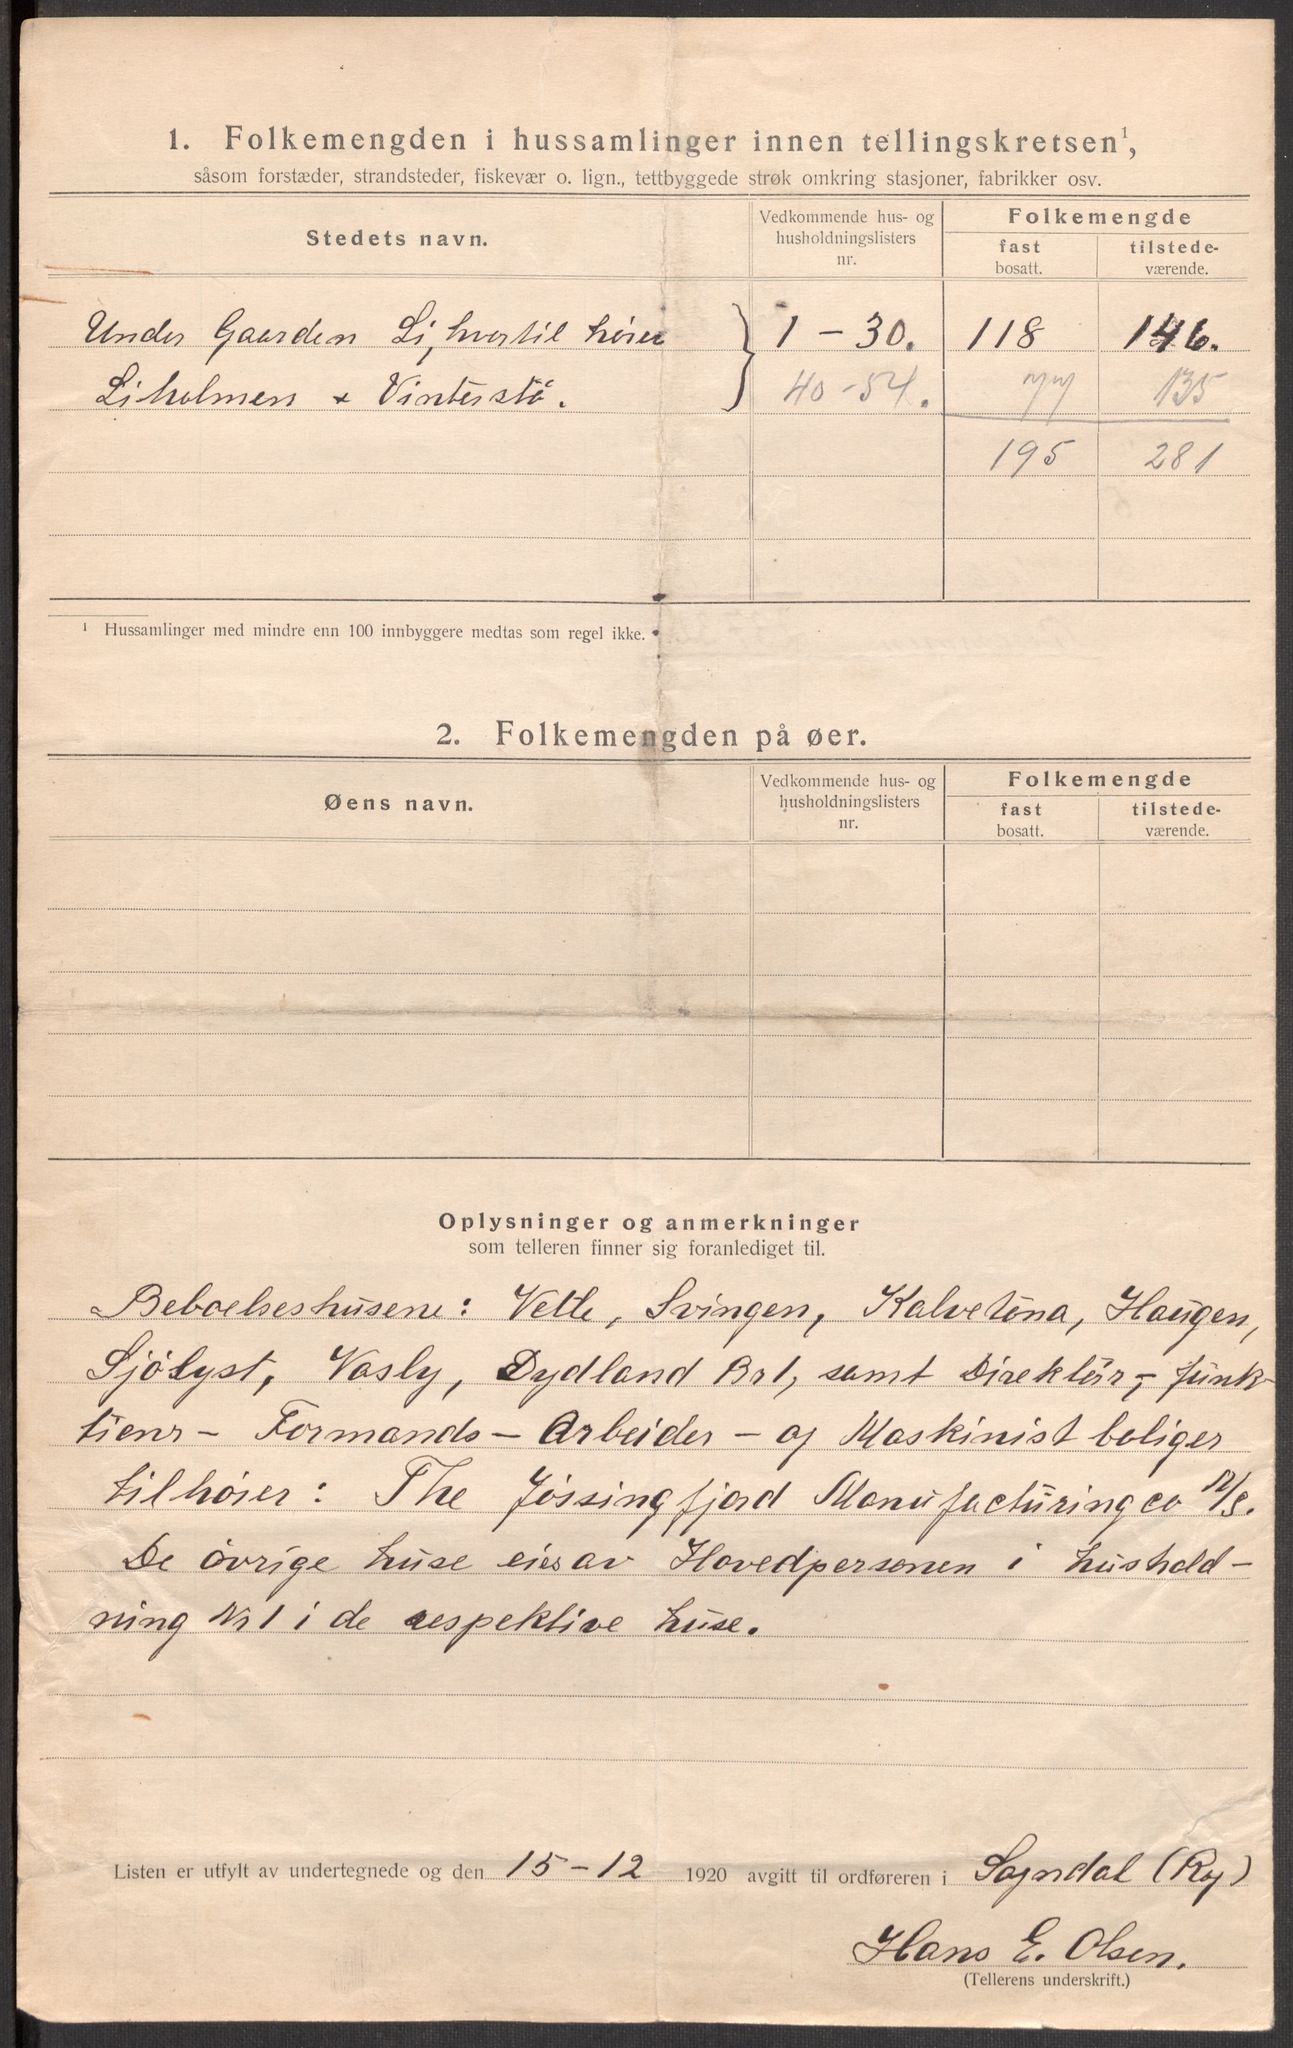 1. Folkemengden i hussamlinger innen tellingskretsen¹,
såsom forstæder, strandsteder, fiskevær o. lign., tettbyggede strøk omkring stasjoner, fabrikker osv.
Stedets navn.
Vedkommende hus- og
husholdningslisters
nr.
Folkemengde
fast
bosatt.
tilstede-
værende.
Under Gaarden Li, hvortil hører
1 – 30. 118 146.
Liholmen + Vinterstö.
40 – 54. 77 135
195 281
¹ Hussamlinger med mindre enn 100 innbyggere medtas som regel ikke.
2. Folkemengden på øer.
Øens navn.
Vedkommende hus- og
husholdningslisters
nr.
Folkemengde
fast
bosatt.
tilstede-
værende.
Oplysninger og anmerkninger
som telleren finner sig foranlediget til.
Beboelseshusene: Vette, Svingen, Kalvetuna, Haugen,
Sjölyst, Vasly, Dydland Br1, samt Direktör-, funk-
tienr – Formands – Arbeider – og Maskinist boliger
tilhörer: The Jössingfjord Manufacturing co A/S.
De övrige huse eies av Hovedpersonen i hushold-
ning Nr 1 i de respektive huse.
Listen er utfylt av undertegnede og den 15-12 1920 avgitt til ordføreren i Sogndal (Rog)
Hans E. Olsen.
(Tellerens underskrift.)